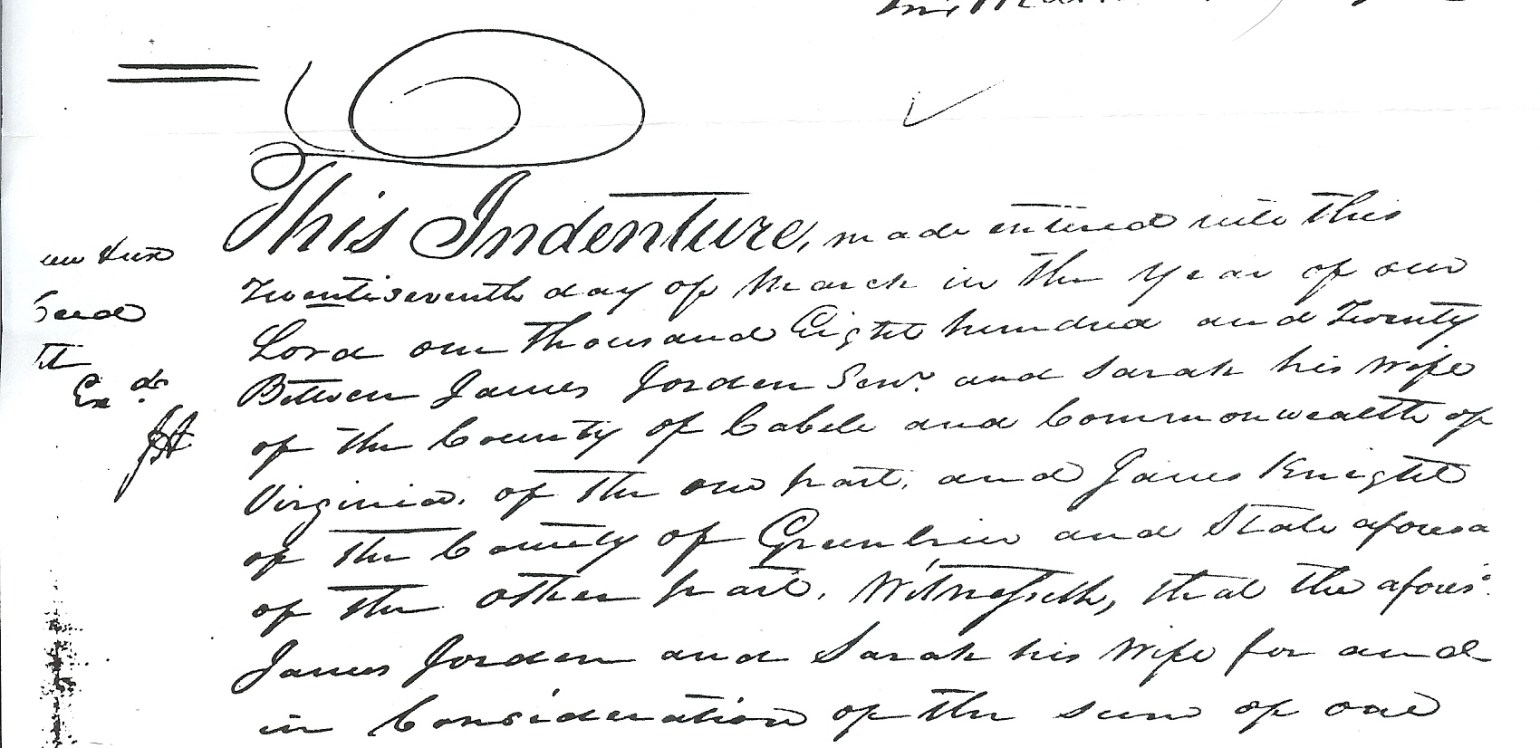 This Indenture, made entered into this
Twentiseventh day of March in the year of our
Lord one thousand Eight hundred and Twenty
Between James Jorden Senr. and Sarah his wife
of the County of Cabele and Commonwealth of
Virginia. of the one part, and James Knight
of the County of Greenbrier and State aforesa
of the other part. Witnesseth, that the afores.
James Jorden and Sarah his wife for and
in Consideration of the sum of one
& ux
Deed
Exd.